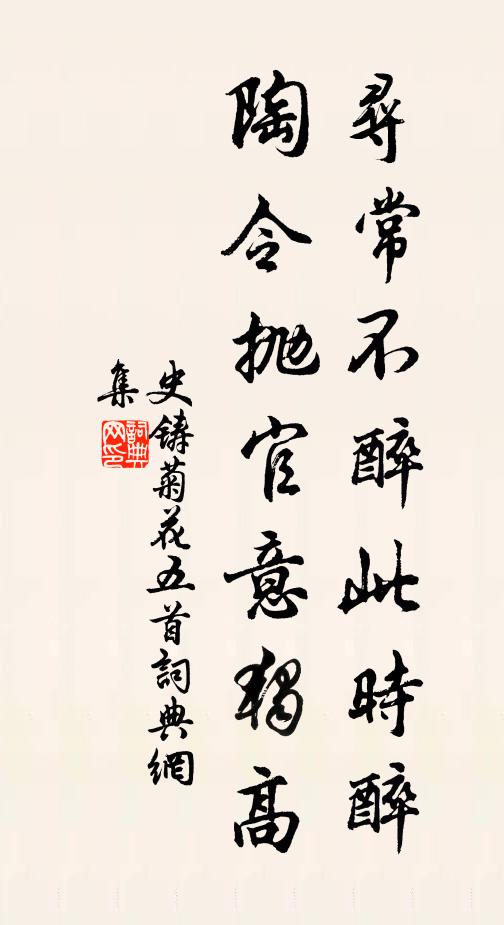 尋常不醉此時醉
陶令拋官意獨高
史鑄菊花五首詞典網
集
詞典
網印